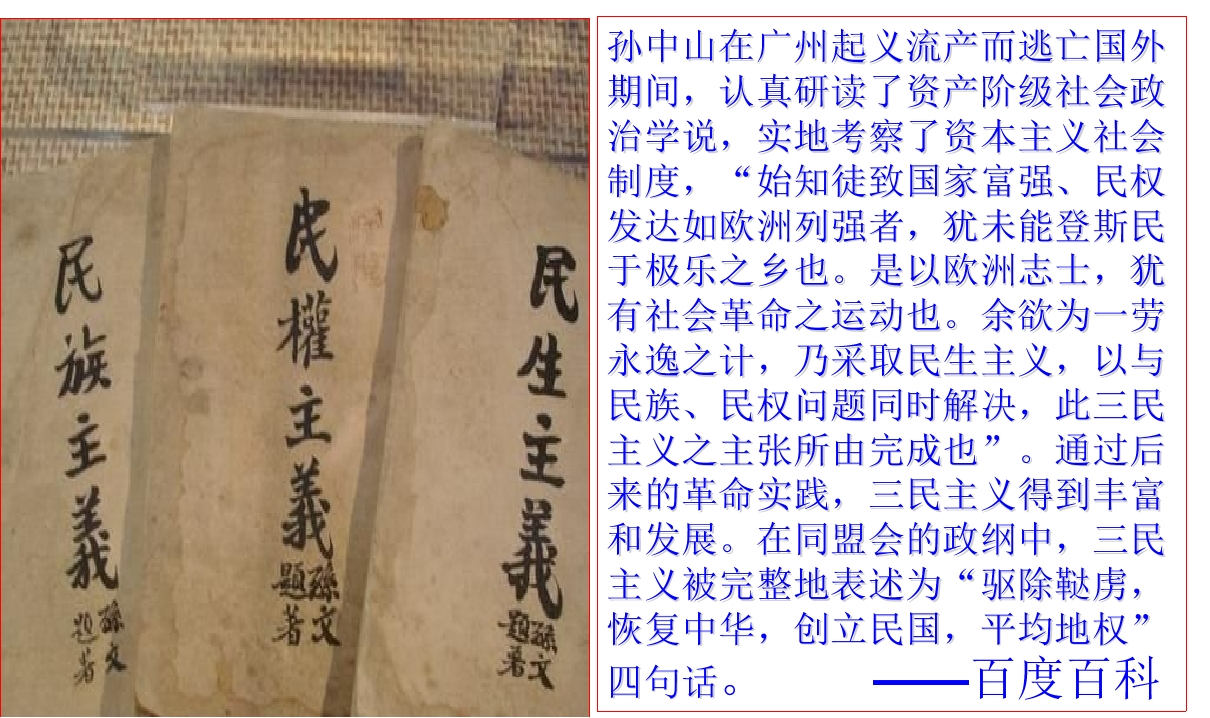 民族主義
孫文
題著
民權主義
孫文
題著
民生主義
孫文
題著
孙中山在广州起义流产而逃亡国外
期间，认真研读了资产阶级社会政
治学说，实地考察了资本主义社会
制度，“始知徒致国家富强、民权
发达如欧洲列强者，犹未能登斯民
于极乐之乡也。是以欧洲志士，犹
有社会革命之运动也。余欲为一劳
永逸之计，乃采取民生主义，以与
民族、民权问题同时解决，此三民
主义之主张所由完成也”。通过后
来的革命实践，三民主义得到丰富
和发展。在同盟会的政纲中，三民
主义被完整地表述为“驱除鞑虏，
恢复中华，创立民国，平均地权”
四句话。 ——百度百科